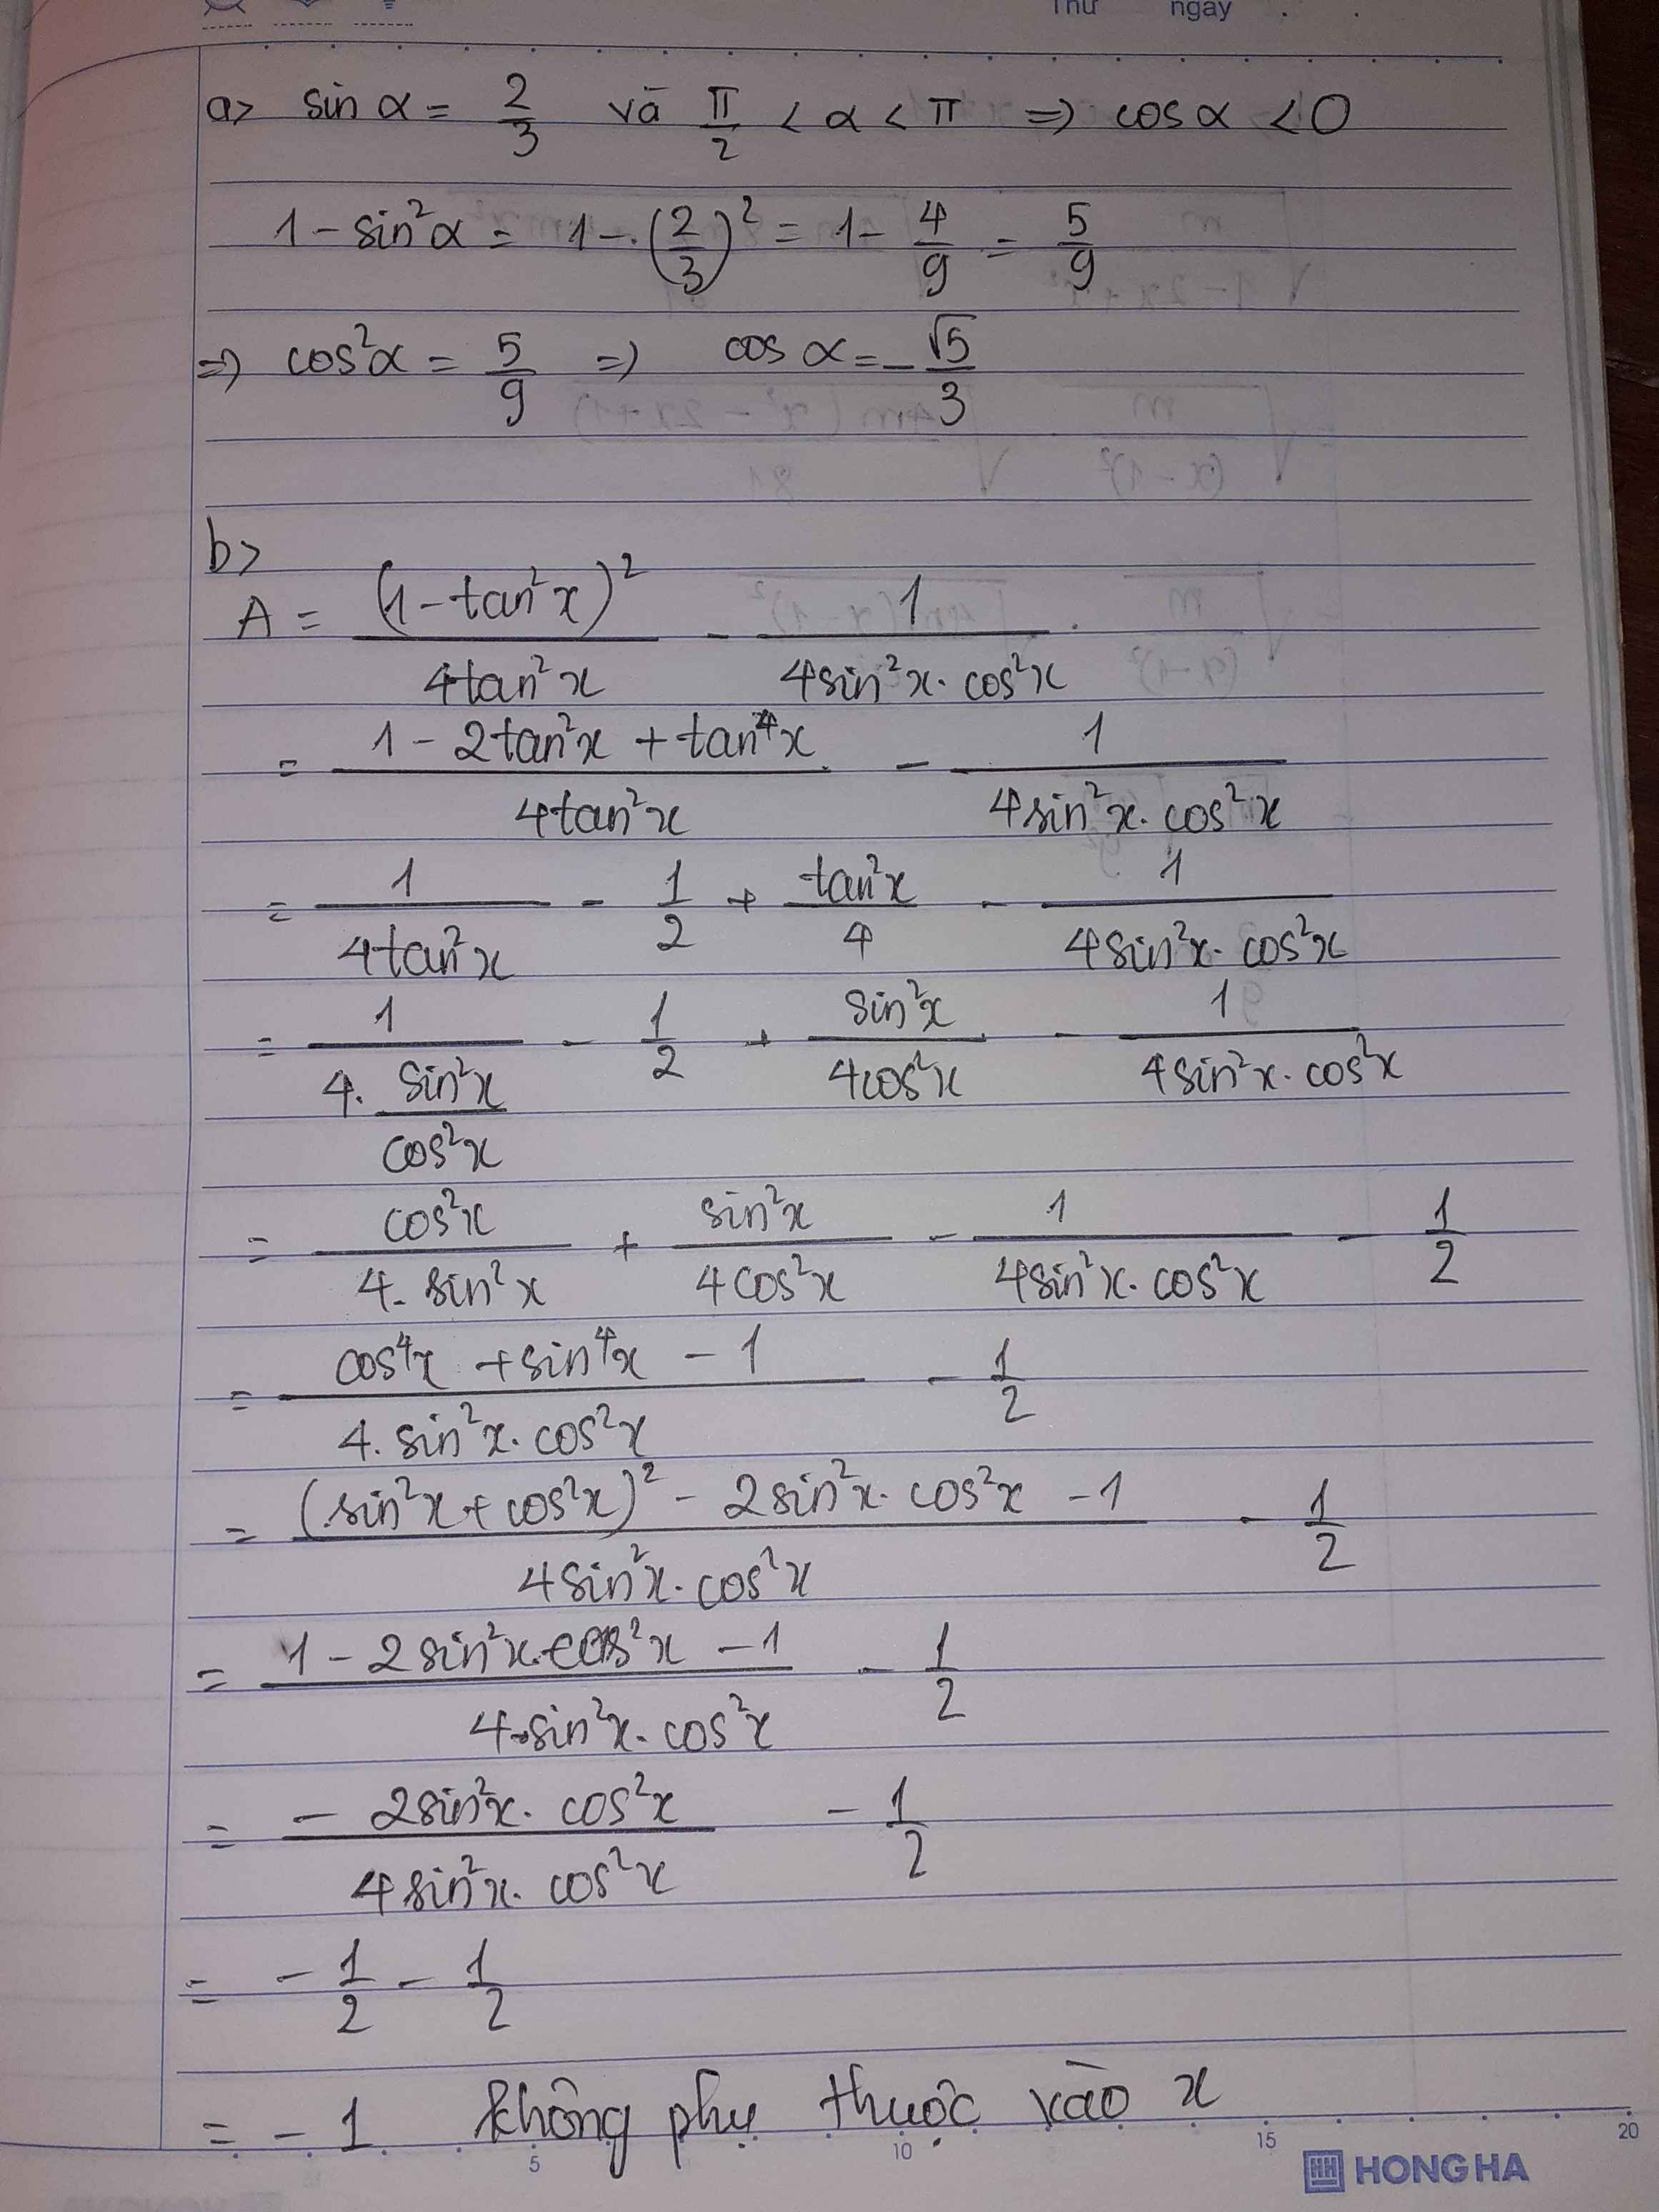 Thứ ngày
a> sin α = 2/3 và π/2 < α < π => cos α < 0
1 - sin²α = 1 - (2/3)² = 1 - 4/9 = 5/9
=> cos²α = 5/9 => cos α = -√5/3
b>
A = (1 - tan²x)²/4tan²x - 1/4sin²x. cos²x
= 1 - 2tan²x + tan⁴x/4tan²x - 1/4sin²x. cos²x
= 1/4tan²x - 1/2 + tan²x/4 - 1/4sin²x. cos²x
= 1/4. sin²x/cos²x - 1/2 + sin²x/4cos²x - 1/4sin²x. cos²x
= cos²x/4. sin²x + sin²x/4cos²x - 1/4sin²x. cos²x - 1/2
= cos⁴x + sin⁴x - 1/4. sin²x. cos²x - 1/2
= (sin²x + cos²x)² - 2sin²x. cos²x - 1/4sin²x. cos²x - 1/2
= 1 - 2sin²x. cos²x - 1/4. sin²x. cos²x - 1/2
= - 2sin²x. cos²x/4sin²x. cos²x - 1/2
= - 1/2 - 1/2
= - 1 không phụ thuộc vào x
5 10 15 20
HH HONG HA